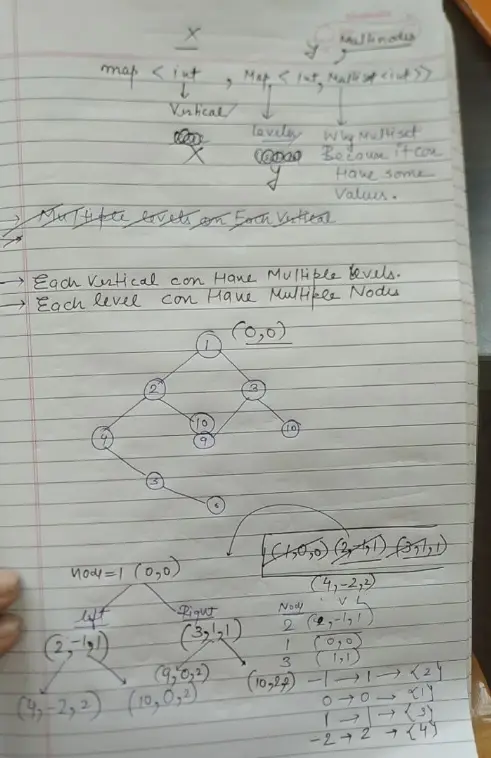 X y Multinodes
map < int , Map < int, Multiset <int>>
Vertical levels Why Multiset
X y Because it can
Have some
Values.
→ Multiple levels on Each Vertical
→
→ Each Vertical can Have Multiple levels.
→ Each level can Have Multiple Nodes
1 (0,0)
2 3
4 10 9 10
5
6
(1,0,0) (2,-1,1) (3,1,1)
node=1 (0,0) (4,-2,2)
left Right Node V L
(2,-1,1) (3,1,1) 2 (-1,1)
1 (0,0)
(9,0,2) (10,2,2) 3 (1,1)
(4,-2,2) (10,0,2) -1 → 1 → {2}
0 → 0 → {1}
1 → 1 → {3}
-2 → 2 → {4}